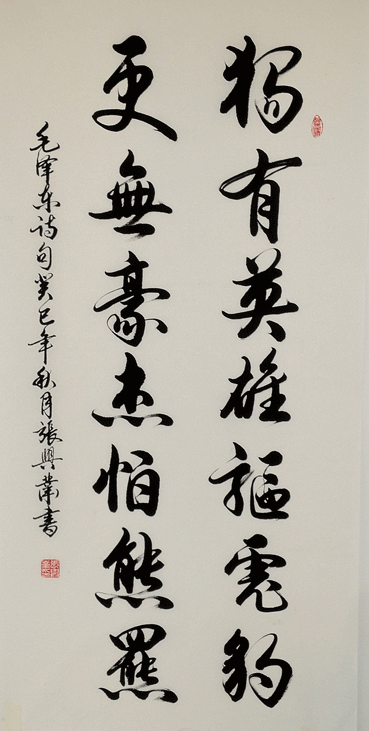 獨有英雄驅虎豹
更無豪杰怕熊羆
毛泽东诗句癸巳年秋月張興書